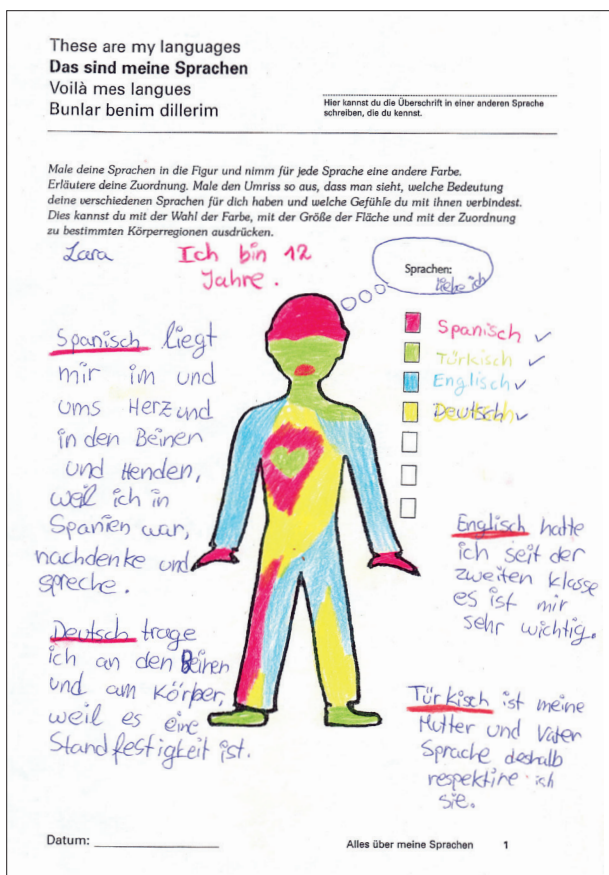 These are my languages
Das sind meine Sprachen
Voilà mes langues
Bunlar benim dillerim
Hier kannst du die Überschrift in einer anderen Sprache
schreiben, die du kennst.
Male deine Sprachen in die Figur und nimm für jede Sprache eine andere Farbe.
Erläutere deine Zuordnung. Male den Umriss so aus, dass man sieht, welche Bedeutung
deine verschiedenen Sprachen für dich haben und welche Gefühle du mit ihnen verbindest.
Dies kannst du mit der Wahl der Farbe, mit der Größe der Fläche und mit der Zuordnung
zu bestimmten Körperregionen ausdrücken.
Lara
Ich bin 12
Jahre.
Sprachen:
liebe ich
Spanisch ✓
Türkisch ✓
Englisch ✓
Deutsch ✓
Spanisch liegt
mir im und
ums Herz und
in den Beinen
und Henden,
weil ich in
Spanien war,
nachdenke und
spreche.
Deutsch trage
ich an den Beinen
und am Körper,
weil es eine
Standfestigkeit ist.
Englisch hatte
ich seit der
zweiten klasse
es ist mir
sehr wichtig.
Türkisch ist meine
Mutter und Vater
Sprache deshalb
respektire ich
sie.
Datum:
Alles über meine Sprachen 1